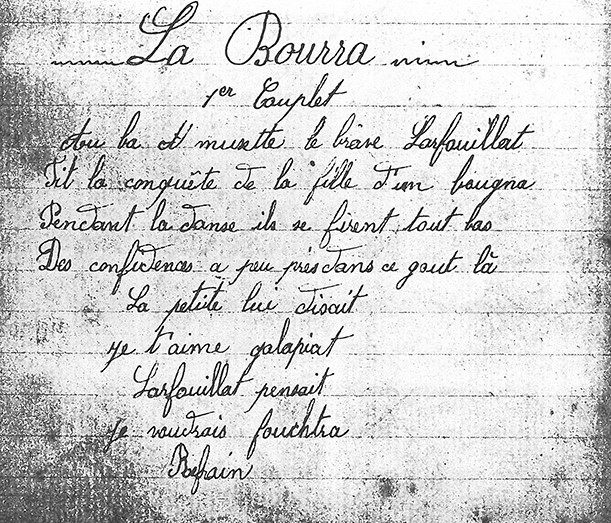 La Bourra
1er Couplet
Au ba d' musette le brave Larfouillat
Fit la conquête de la fille d'un bougna
Pendant la danse ils se firent tout bas
Des confidences a peu près dans ce gout là
La petite lui disait
Je t'aime galapiat
Larfouillat pensait
Je voudrais fouchtra
Refrain